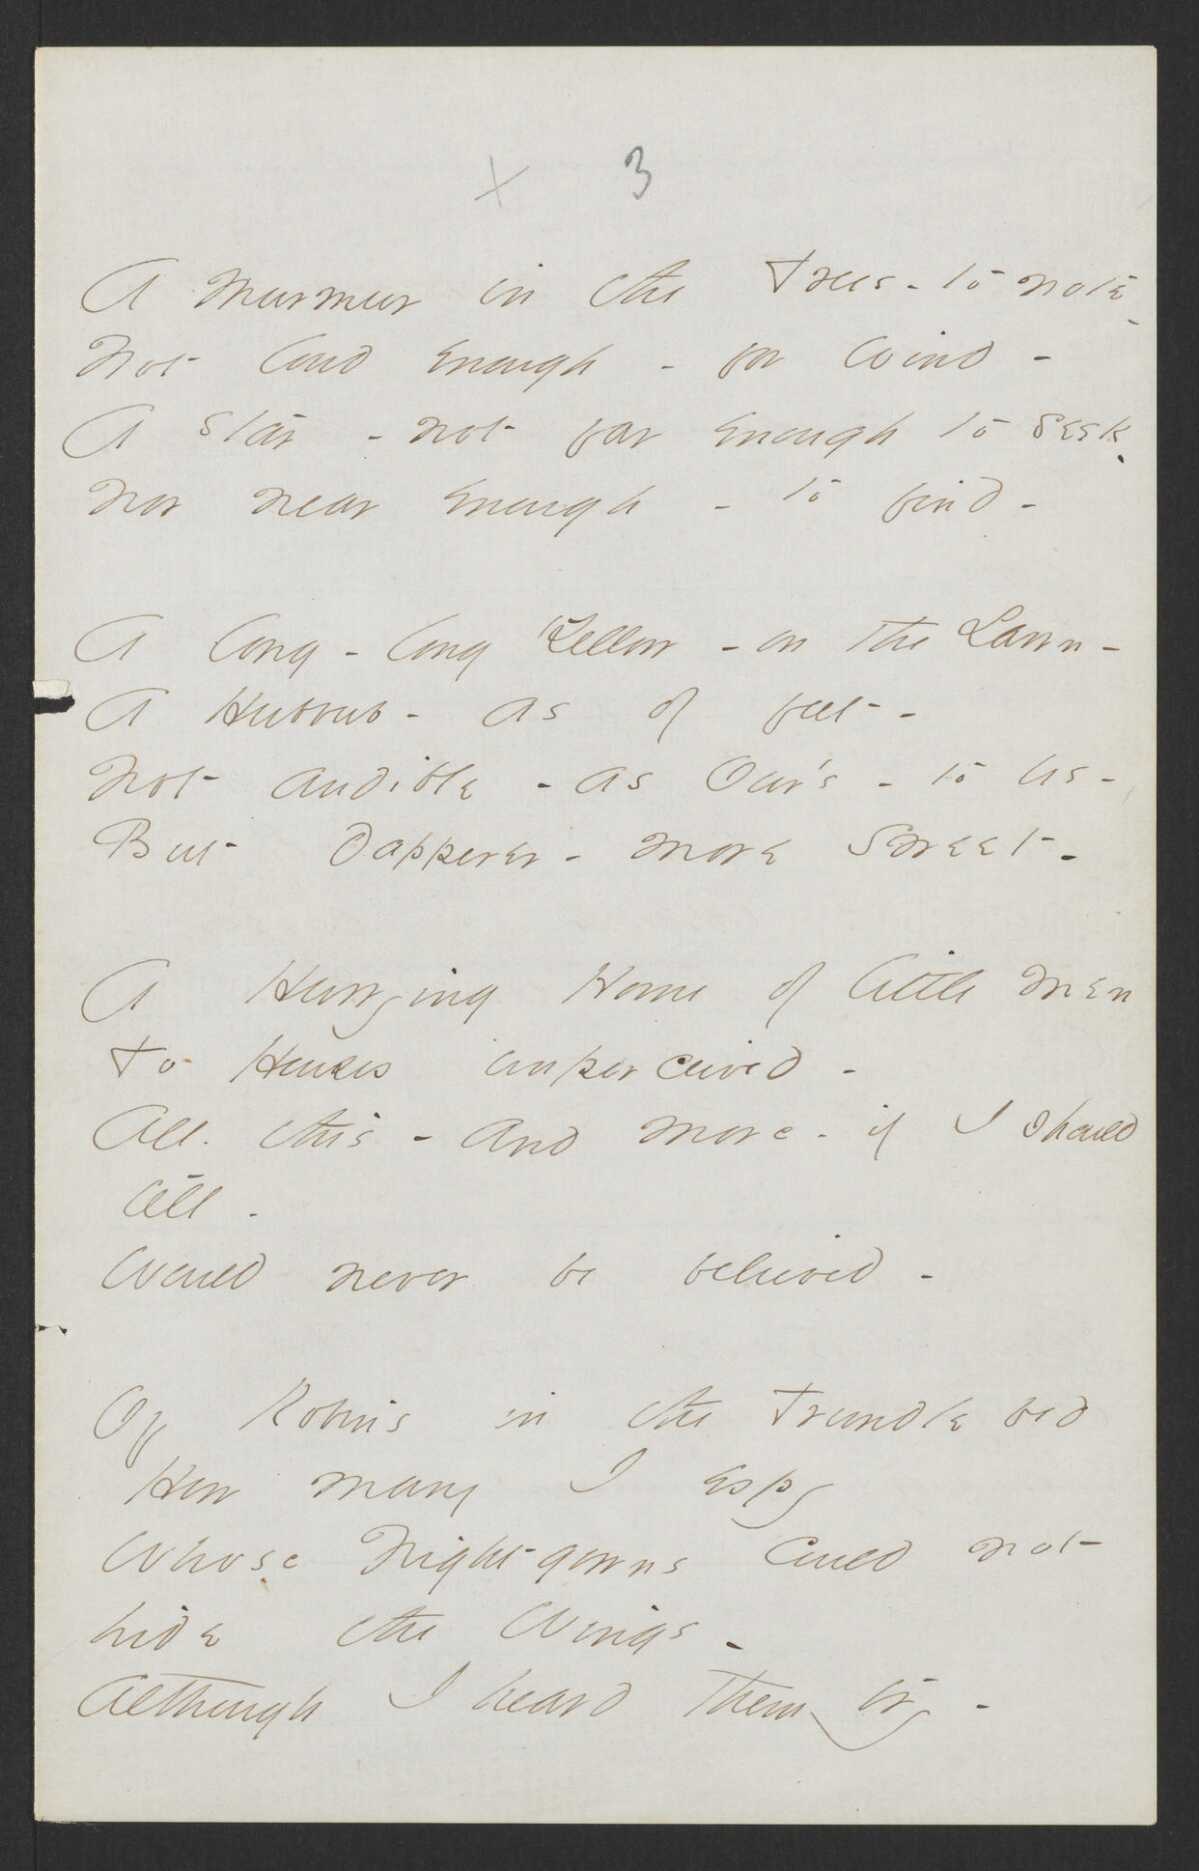 x 3
A Murmur in the Trees - to note -
Not loud enough - for Wind -
A Star - not far enough to seek -
Nor near enough - to find -
A long - long Yellow - on the Lawn -
A Hubbub - as of feet -
Not audible - as Our's - to Us -
But Dapperer - more Sweet -
A Hurrying Home of little Men
To Houses unperceived -
All this - and more - if I should
tell -
Would never be believed -
Of Robins in the Trundle bed
How many I espy
Whose Nightgowns could not
hide the Wings -
Although I heard them try -